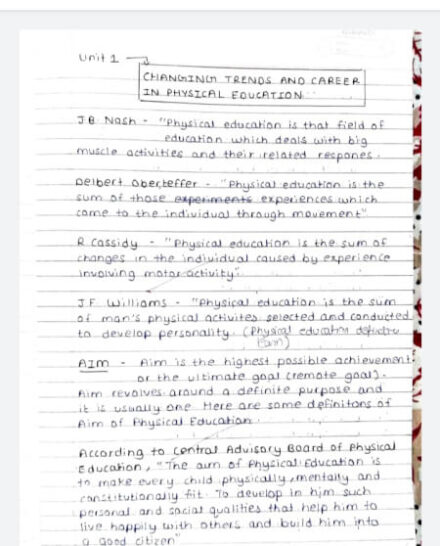 Unit 1
CHANGING TRENDS AND CAREER
IN PHYSICAL EDUCATION
J B Nash - "Physical education is that field of
education which deals with big
muscle activities and their related respones.
Delbert Oberteffer - "Physical education is the
sum of those experiments experiences which
come to the individual through movement"
R Cassidy - "Physical education is the sum of
changes in the individual caused by experience
involving motor activity".
J F Williams - "Physical education is the sum
of man's physical activites selected and conducted
to develop personality. (Physical education
AIM - Aim is the highest possible achievement
or the ultimate goal (remote goal).
Aim revolves around a definite purpose and
it is usually one Here are some definitons of
Aim of Physical Education.
According to Central Advisory Board of Physical
Education, "The aim of Physical Education is
to make every child physically, mentally and
constitutionally fit. To develop in him such
personal and social qualities that help him to
live happily with others and build him into
a good citizen"